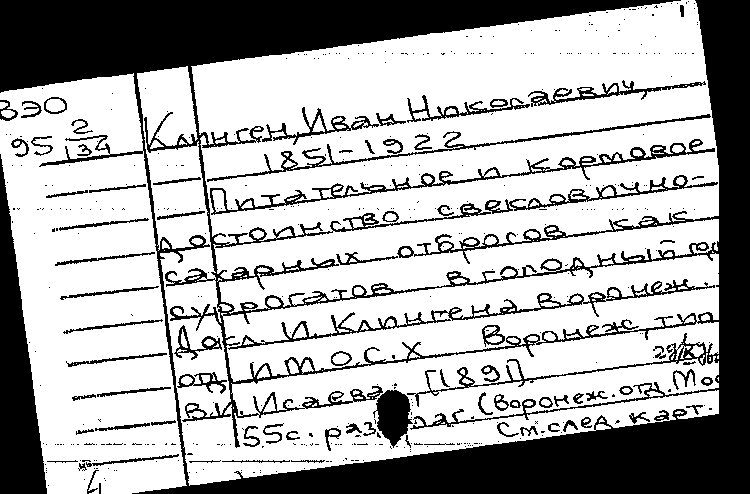 ВЭО
95 2/134
Клинген, Иван Николаевич,
1851-1922
Питательное и кормовое
достоинство свекловично-
сахарных отбросов как
суррогатов в голодный год
Докл. И. Клингена Воронеж.
отд. И.М.О.С.Х Воронеж, тип
В.И. Исаева, [1891].
55с. разд. паг. (Воронеж. отд. Мос
См. след. карт.
4